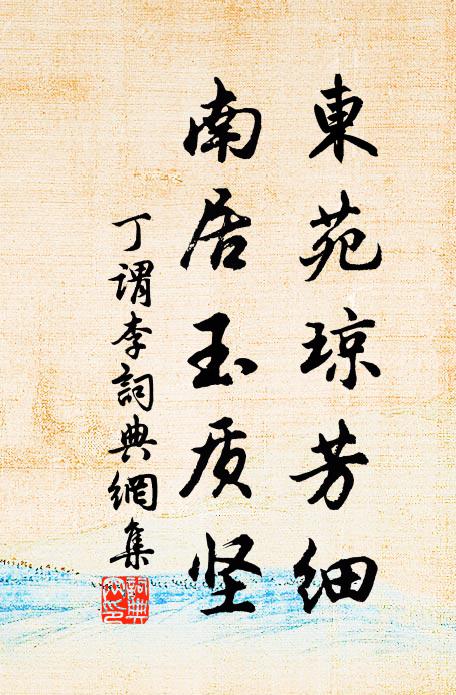 東苑琼芳细
南居玉质坚
丁谓李詞典網集